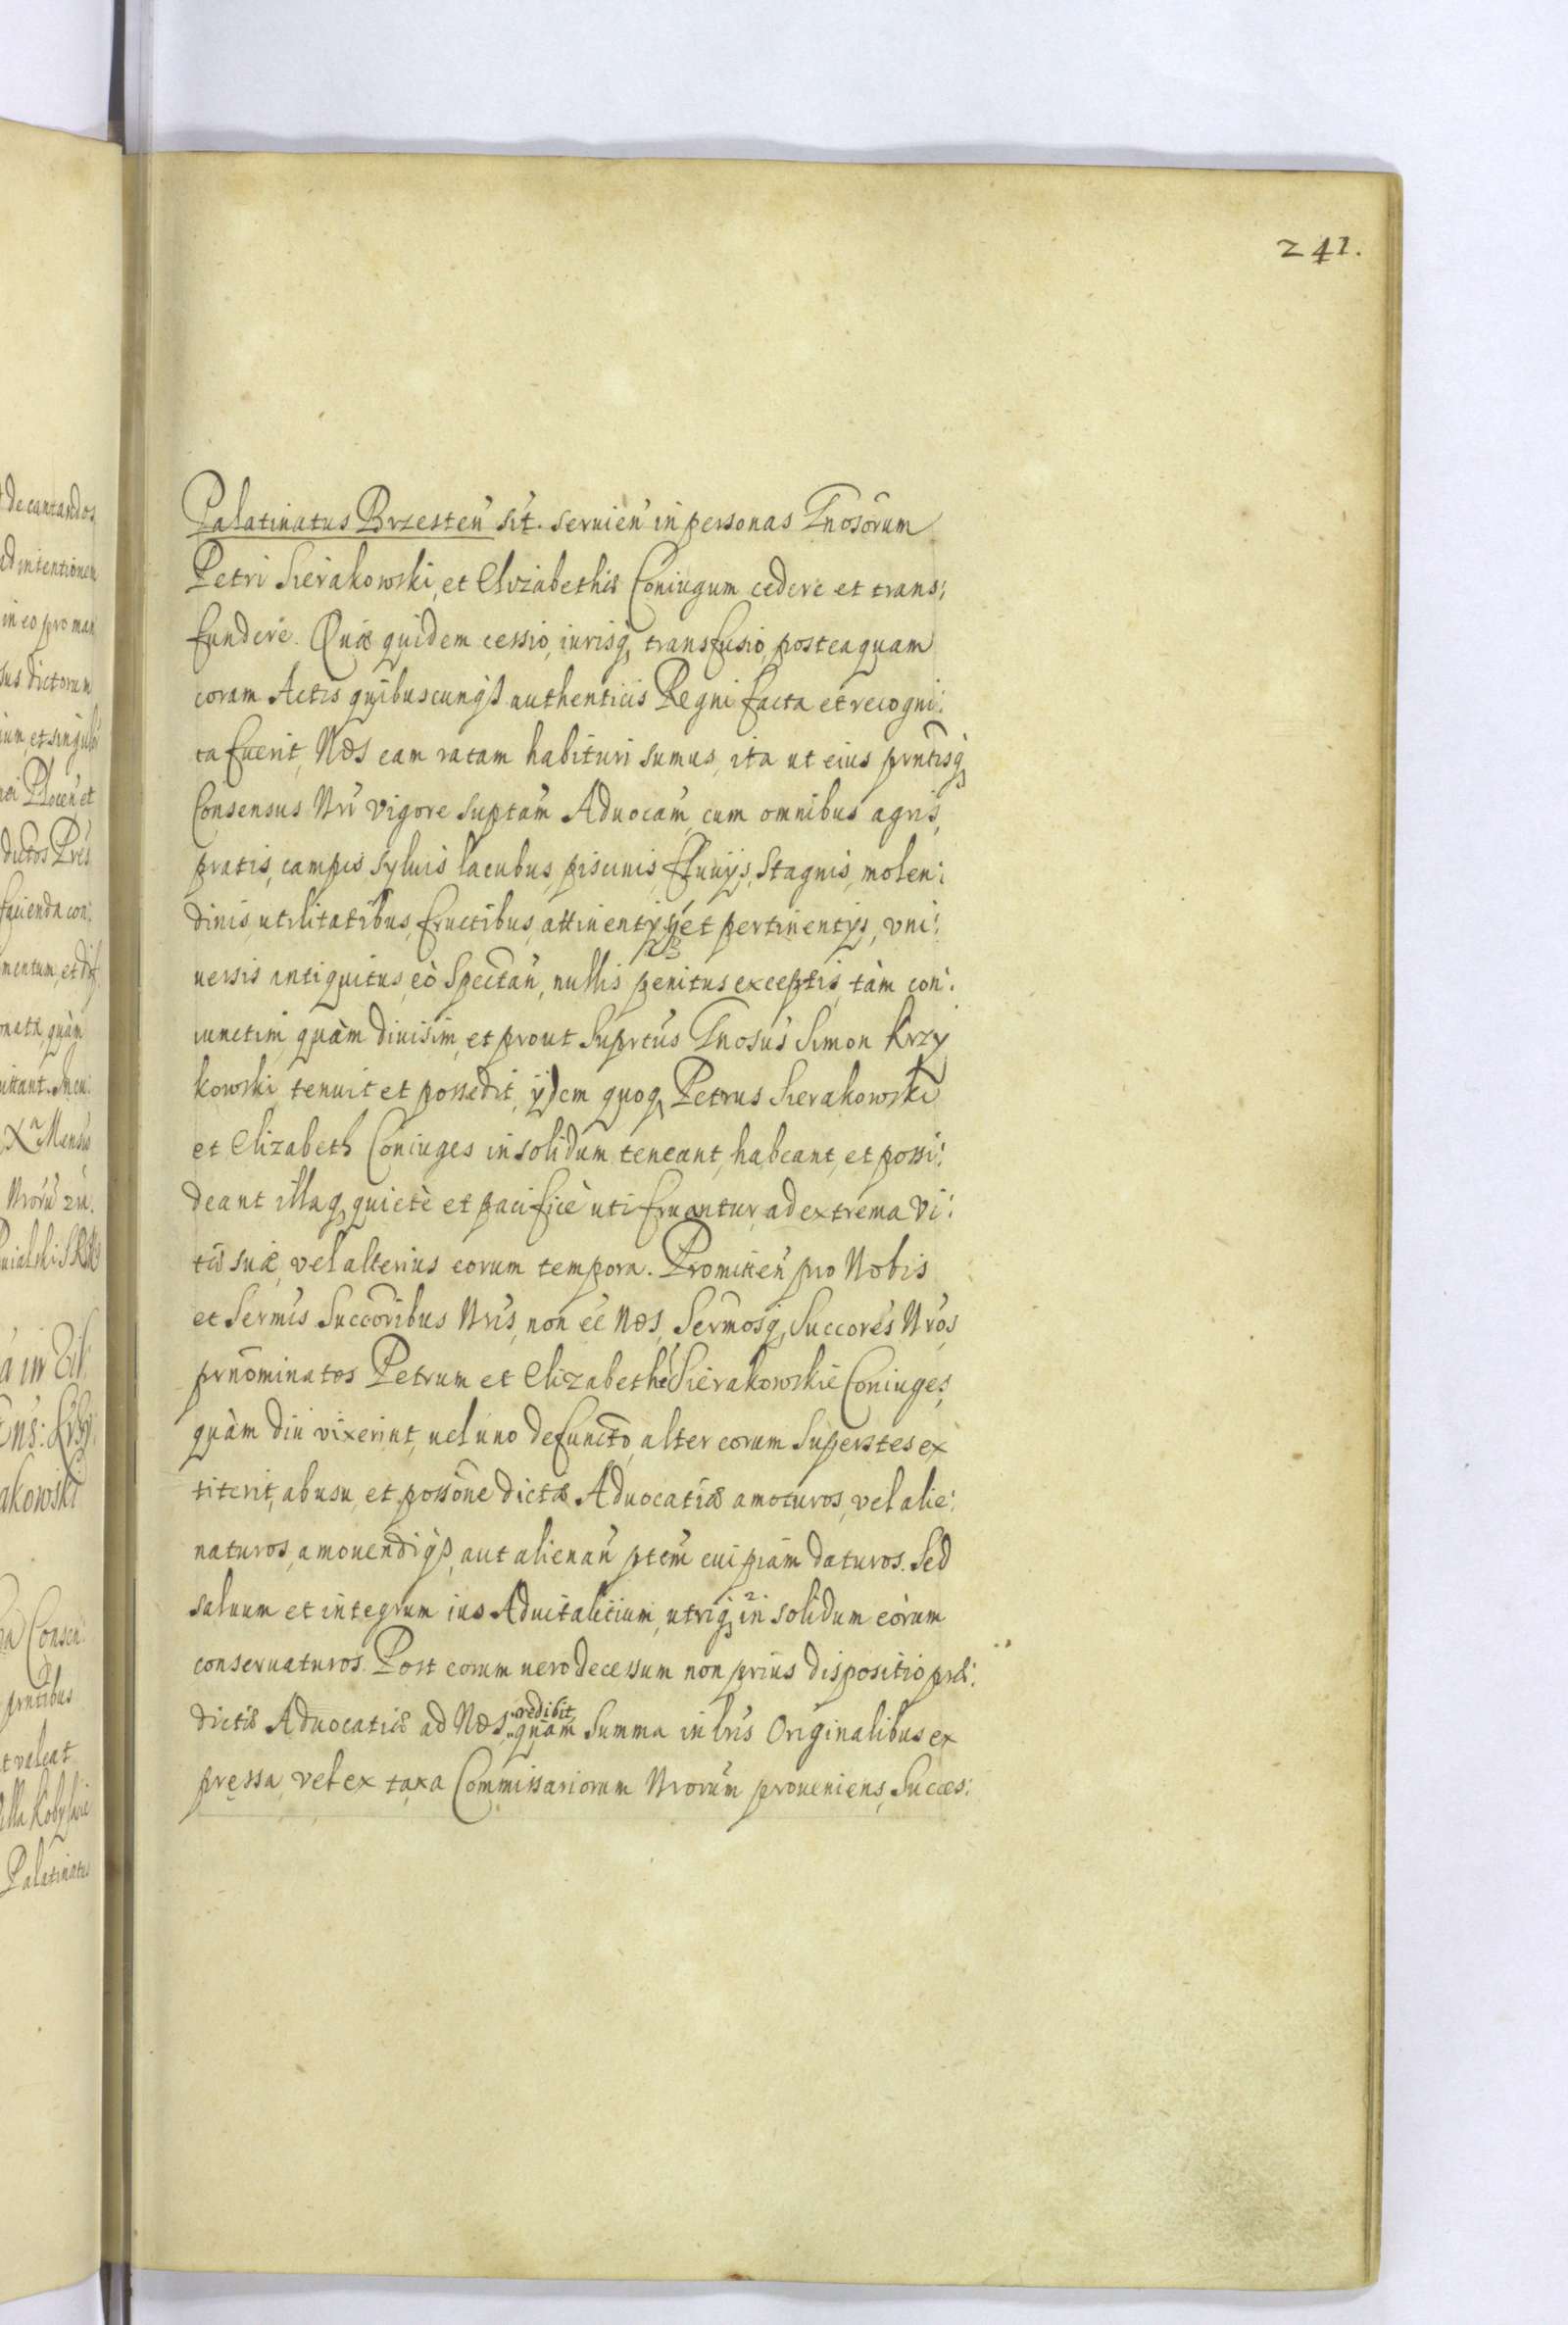 241.
Palatinatus Brzesten̄ sit. seruien̄ in personas Gnosorum
Petri Sierakowski, et Elizabethæ Coniugum cedere et trans:
fundere. Quæ quidem cessio, iurisq, transfusio, posteaquam
coram Actis quibuscunqß authenticis Regni facta et recogni:
ta fuerit, Nos eam ratam habituri sumus, ita ut eius prntisq
Consensus Nri vigore suptam Aduocam, cum omnibus agris,
pratis, campis sylvis lacubus, piscinis, fluuijs, stagnis, molen:
dinis, utilitatibus, fructibus, attinentijs et pertinentijs, vni:
uersis antiquitus, eò spectan̄, nullis penitus exceptis, tàm con:
iunctim quàm diuisim, et prout suprtus Gnosus Simon Krzy
kowski tenuit et possedit, ijdem quoq Petrus Sierakowski
et Elizabeth Coniuges in solidum teneant, habeant, et possi:
deant illaq, quietè et pacificè uti fruantur, ad extrema vi:
tæ suæ, vel alterius eorum tempora. Promitten̄ pro Nobis
et Sermis Succoribus Nris, non eē Nos, Sermosq, Succores Nros
prnominatos Petrum et Elizabethā Sierakowskie Coniuges,
quàm diu vixerint, uel uno defuncto, alter eorum superstes ex
titerit, ab usu, et possōne dictæ Aduocatiæ amoturos, vel alie:
naturos, amouendiqß, aut alienan̄ ptem cuipiam daturos. Sed
saluum et integrum ius Aduitalitium, utriq, in solidum eorum
conseruaturos. Post eorum uero decessum non prius dispositio præ:
dictæ Aduocatiæ ad Nos redibit, quam Summa in lris Originalibus ex
pressa, vel ex taxa Commissariorum Nrorum proueniens, Succes: